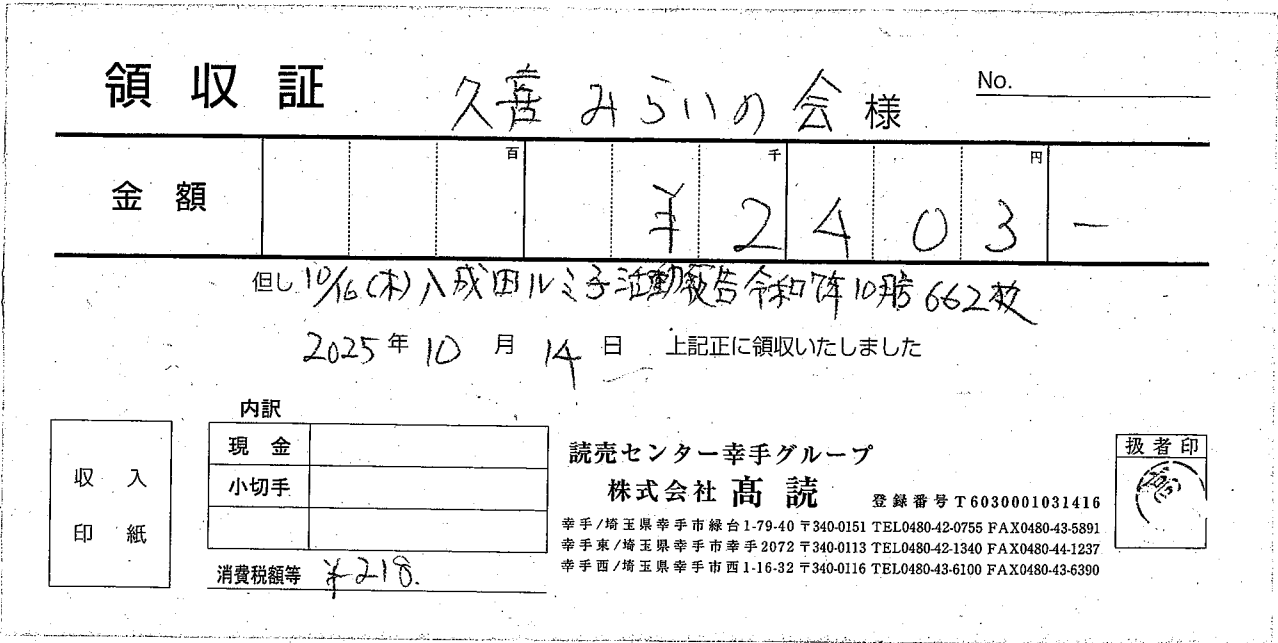 領収証 久喜みらいの会 様 No.
金額 百 千 円 ¥2403-
但し 10/16(木)入成田ルミ子活動報告令和7年10月号662枚
2025年10月14日 上記正に領収いたしました
内訳
現金
小切手
消費税額等 ¥218.
収入
印紙
読売センター幸手グループ
株式会社 髙読 登録番号T6030001031416
幸手/埼玉県幸手市緑台1-79-40 〒340-0151 TEL0480-42-0755 FAX0480-43-5891
幸手東/埼玉県幸手市幸手2072 〒340-0113 TEL0480-42-1340 FAX0480-44-1237
幸手西/埼玉県幸手市西1-16-32 〒340-0116 TEL0480-43-6100 FAX0480-43-6390
扱者印